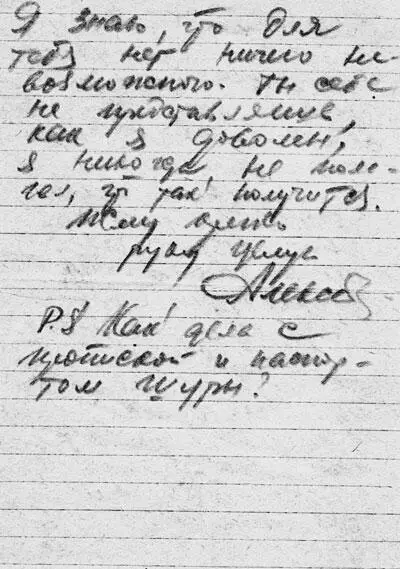 Я знаю, что для
тебя нет ничего не-
возможного. Ты себе
не представляешь,
как я доволен!
я никогда не пола-
гал, что так получится.
Жму крепко
руку целую
Алексей
P.S. Как дела с
пропиской и паспор-
том Шуры?